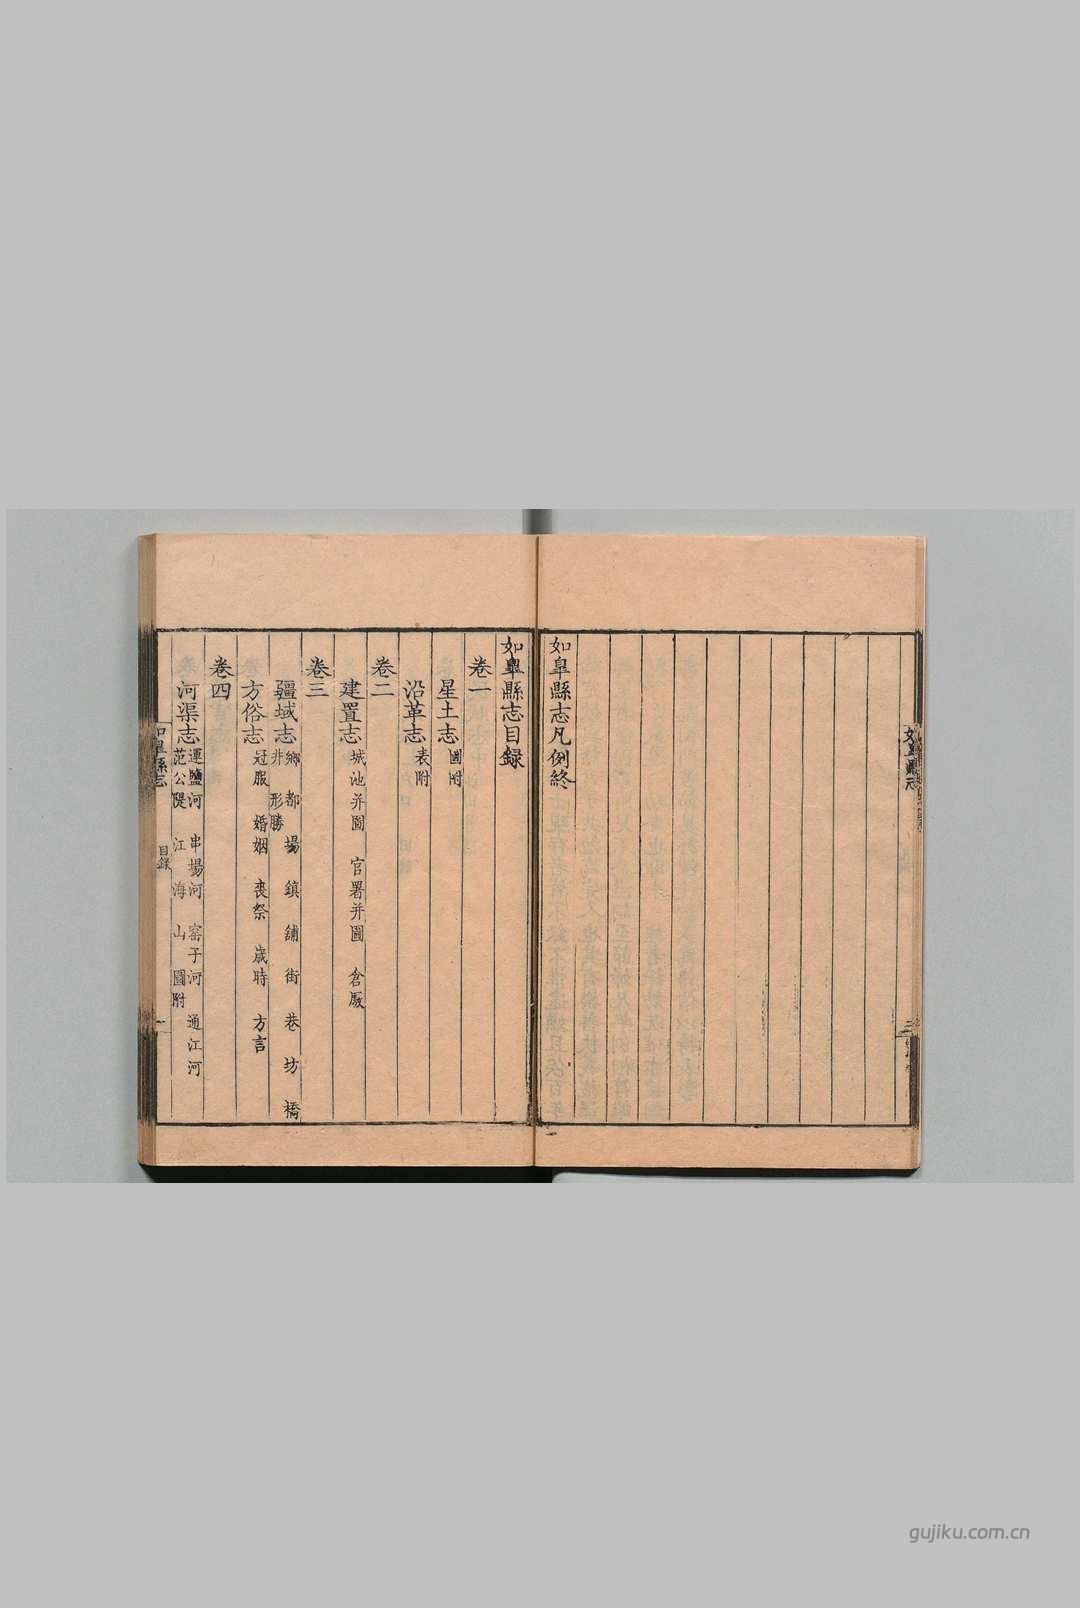 如臯縣志
如臯縣志凡例終
如臯縣志目録
卷一
星土志 圖附
沿革志 表附
卷二
建置志 城池并圖 官署并圖 倉厫
卷三
疆域志 鄉 都 場 鎮 舖 街 巷 坊 橋
井 形勝
方俗志 冠服 婚姻 喪祭 歲時 方言
卷四
河渠志 運鹽河 串場河 窑子河 通江河
范公隄 江 海 山 圖附
如臯縣志 目録 一
gujiku.com.cn